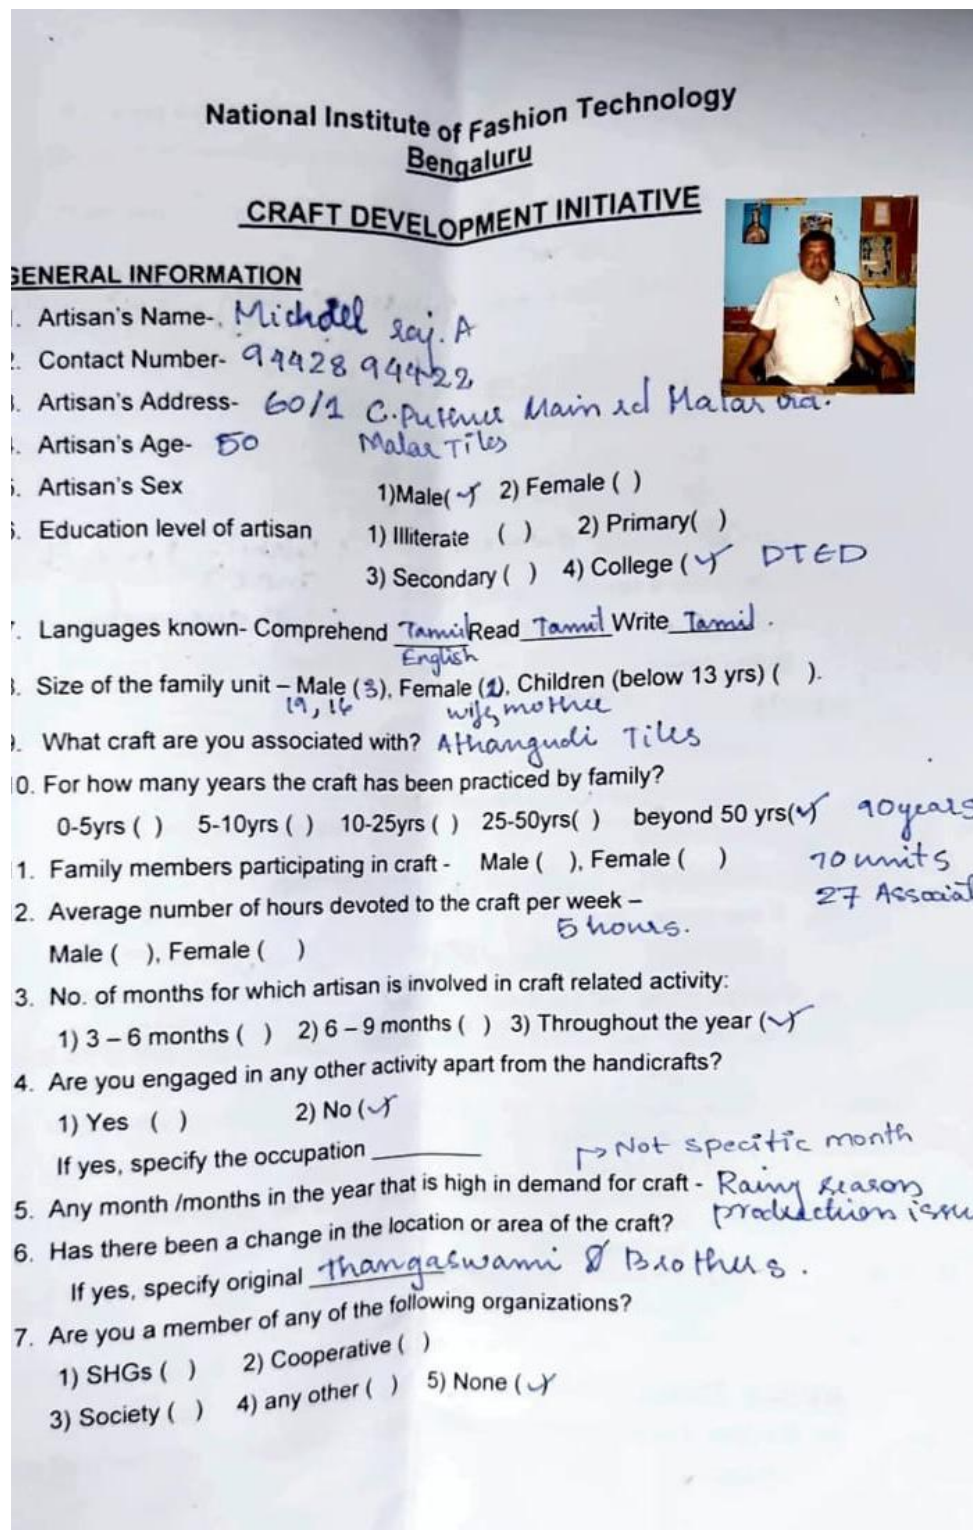 National Institute of Fashion Technology
Bengaluru
CRAFT DEVELOPMENT INITIATIVE
GENERAL INFORMATION
. Artisan's Name- Michael raj. A
. Contact Number- 94428 94422
. Artisan's Address- 60/1 Main rd
Malar Tiles
. Artisan's Age- 50
. Artisan's Sex 1)Male(✓) 2) Female ( )
. Education level of artisan 1) Illiterate ( ) 2) Primary( )
3) Secondary ( ) 4) College (✓) DTED
. Languages known- Comprehend Tamil Read Tamil Write Tamil .
English
. Size of the family unit – Male (3), Female (2), Children (below 13 yrs) ( ).
19, 16 wife, mother
. What craft are you associated with? Athangudi Tiles
0. For how many years the craft has been practiced by family?
0-5yrs ( ) 5-10yrs ( ) 10-25yrs ( ) 25-50yrs( ) beyond 50 yrs(✓) 90years
1. Family members participating in craft - Male ( ), Female ( ) 70 units
27 Associat
2. Average number of hours devoted to the craft per week –
5 hours.
Male ( ), Female ( )
3. No. of months for which artisan is involved in craft related activity:
1) 3 – 6 months ( ) 2) 6 – 9 months ( ) 3) Throughout the year (✓)
4. Are you engaged in any other activity apart from the handicrafts?
1) Yes ( ) 2) No (✓)
If yes, specify the occupation
→ Not specific month
5. Any month /months in the year that is high in demand for craft - Rainy season
production issu
6. Has there been a change in the location or area of the craft?
If yes, specify original Thangaswami & Brothers .
7. Are you a member of any of the following organizations?
1) SHGs ( ) 2) Cooperative ( )
3) Society ( ) 4) any other ( ) 5) None (✓)